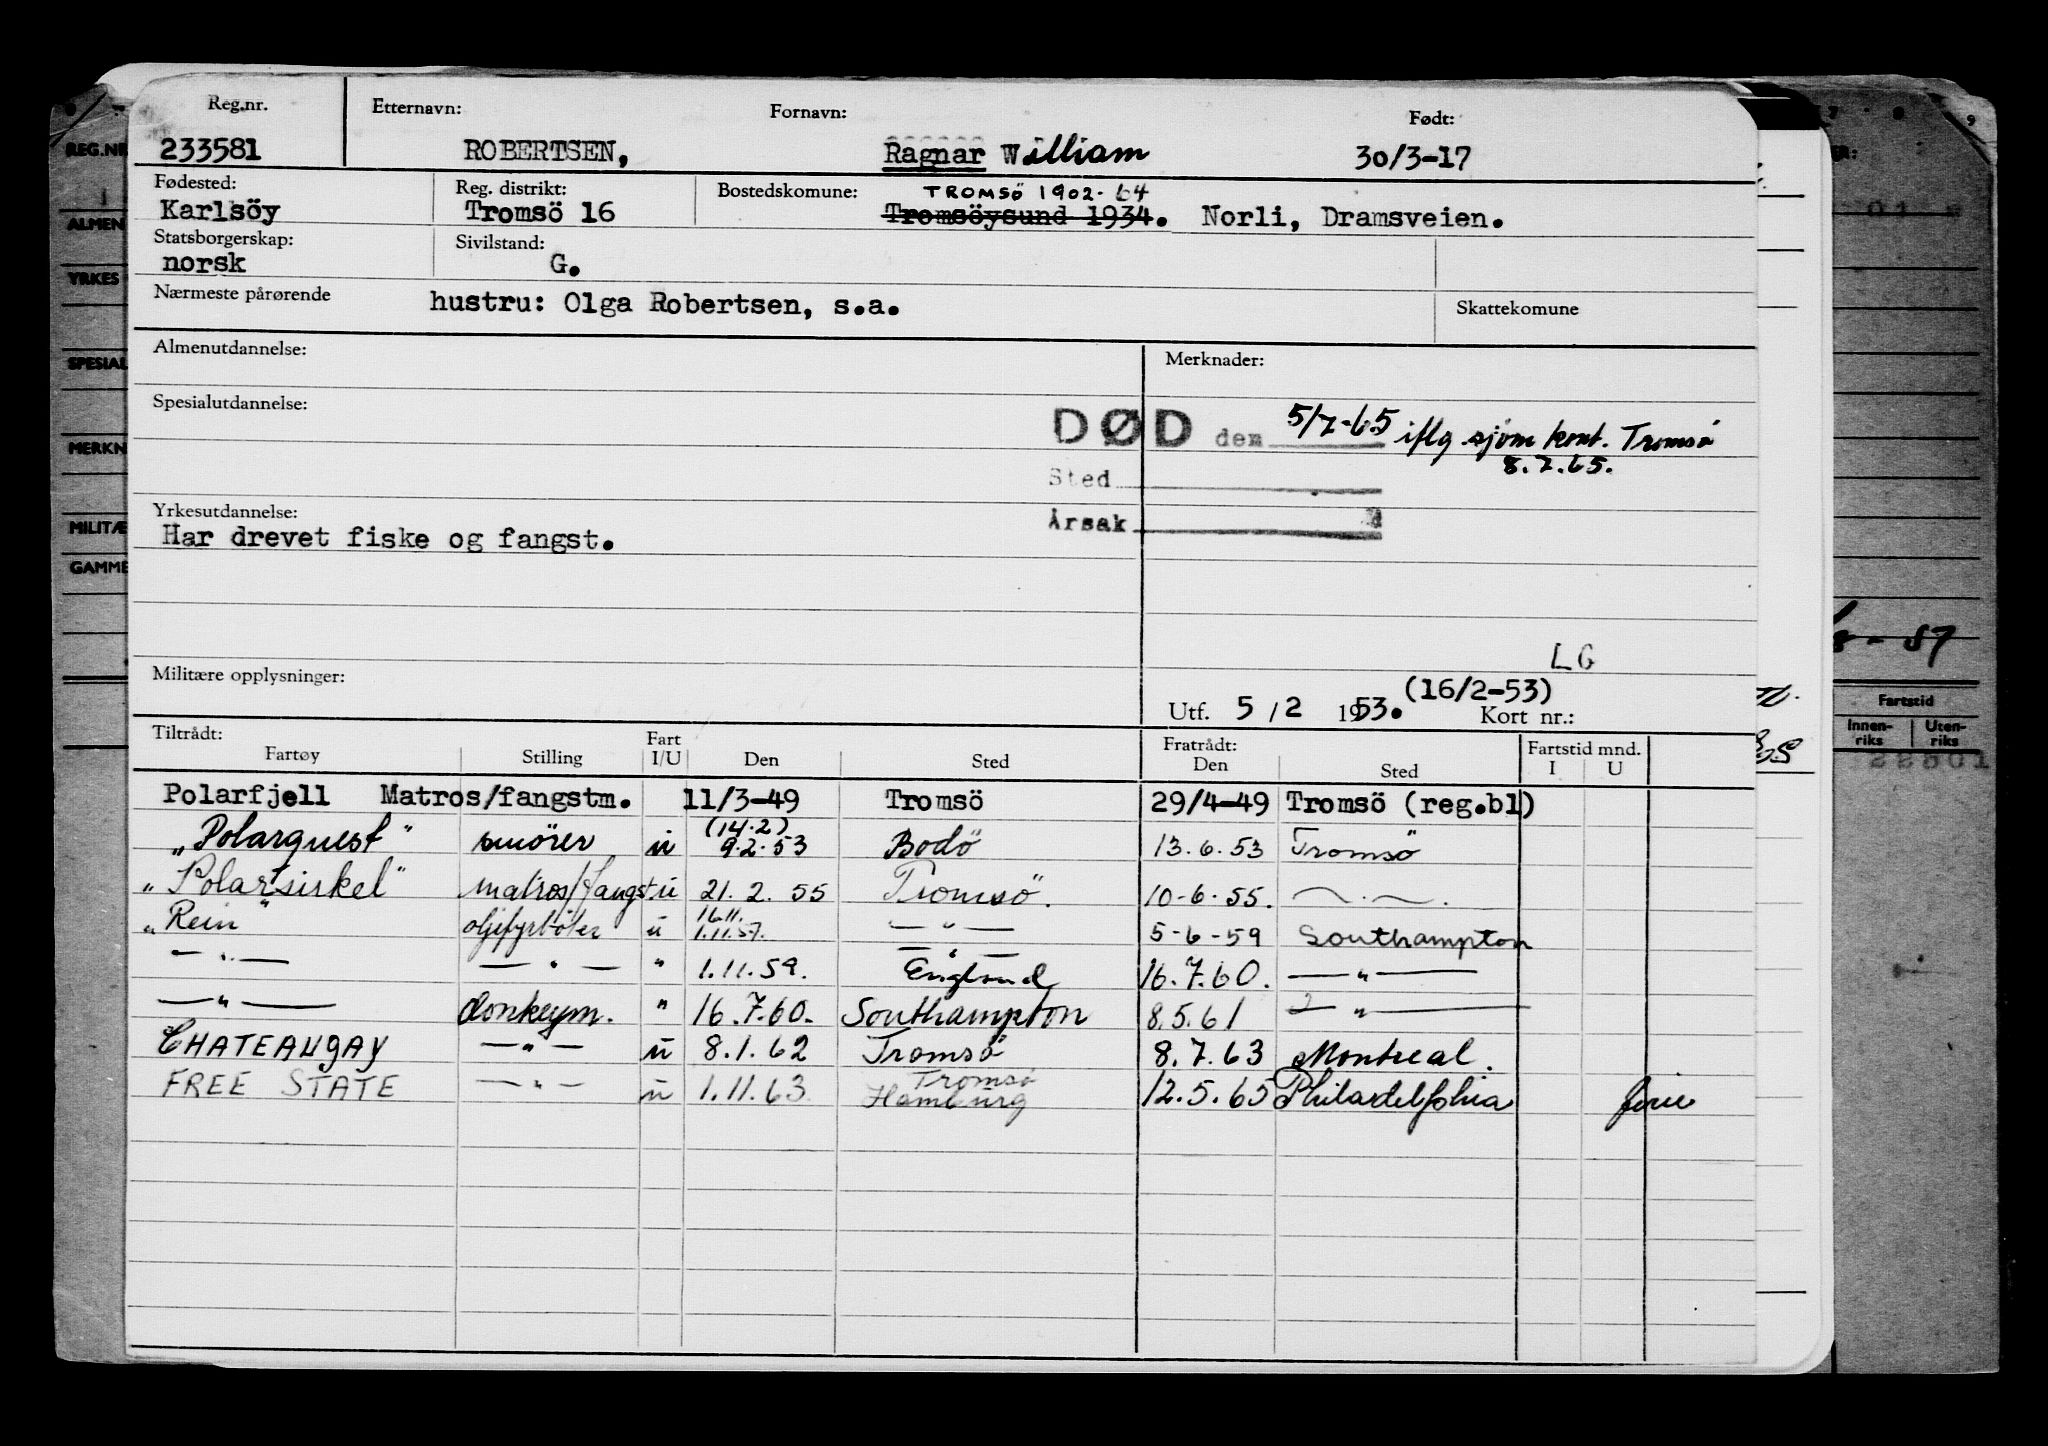 Reg.nr. Etternavn: Fornavn: Født:
233581 ROBERTSEN, Ragnar William 30/3-17
Fødested: Reg. distrikt: Bostedskomune: TROMSÖ 1902-64
Karlsöy Tromsö 16 Tromsöysund 1934. Norli, Dramsveien.
Statsborgerskap: Sivilstand:
norsk G.
Nærmeste pårørende hustru: Olga Robertsen, s.a. Skattekomune
Almenutdannelse: Merknader:
Spesialutdannelse:
DØD den 5/7-65 iflg sjøm kont. Tromsö
8.7.65.
Sted
Yrkesutdannelse: Årsak
Har drevet fiske og fangst.
LG
Militære opplysninger:
(16/2-53)
Utf. 5/2 1953. Kort nr.:
Tiltrådt: Fart Fratrådt: Fartstid mnd.
Fartøy Stilling I/U Den Sted Den Sted I U
Polarfjell Matros/fangstm. 11/3-49 Tromsö 29/4-49 Tromsö (reg.bl)
(14.2)
„Polarquest" smörer u 9.2.53 Bodö 13.6.53 Tromsö
„Polarsirkel" matros/fangst. u 21.2.55 Tromsö. 10-6.55. —.—.
16.11.
„Rein" oljefyrböter u 1.11.57. — " — 5-6-59 Southampton
— " —
— " — — " — " 1.11.59. England 16.7.60. — " —
— " — donkeym. " 16.7.60. Southampton 8.5.61 — " —
CHATEAUGAY — " — u 8.1.62 Tromsö 8.7.63 Montreal.
Tromsö
FREE STATE — " — u 1.11.63 Hamburg 12.5.65 Philadelphia ferie
REG.NR
ALMEN
YRKES
SPESIAL
MERKN
MILITÆ
GAMME
- 57
Fartstid
Innen-riks Uten-riks